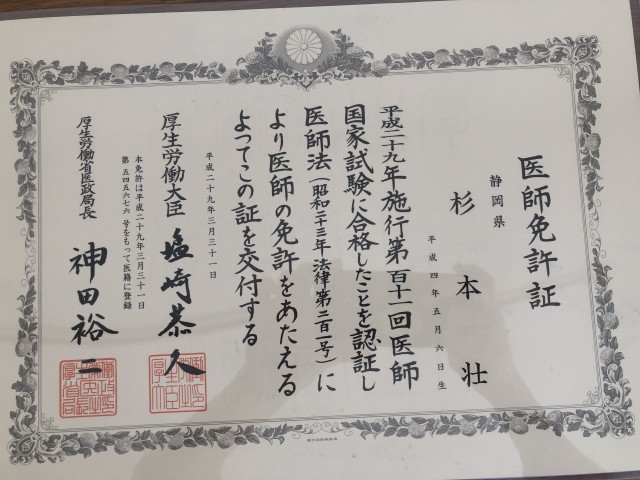 医師免許証
静岡県
杉本壮
平成四年五月六日生
平成二十九年施行第百十一回医師
国家試験に合格したことを認証し
医師法（昭和二十三年法律第二百一号）に
より医師の免許をあたえる
よってこの証を交付する
平成二十九年三月三十一日
厚生労働大臣 塩崎恭久
本免許は平成二十九年三月三十一日
第五四五六七六号をもって医籍に登録
厚生労働省医政局長 神田裕二